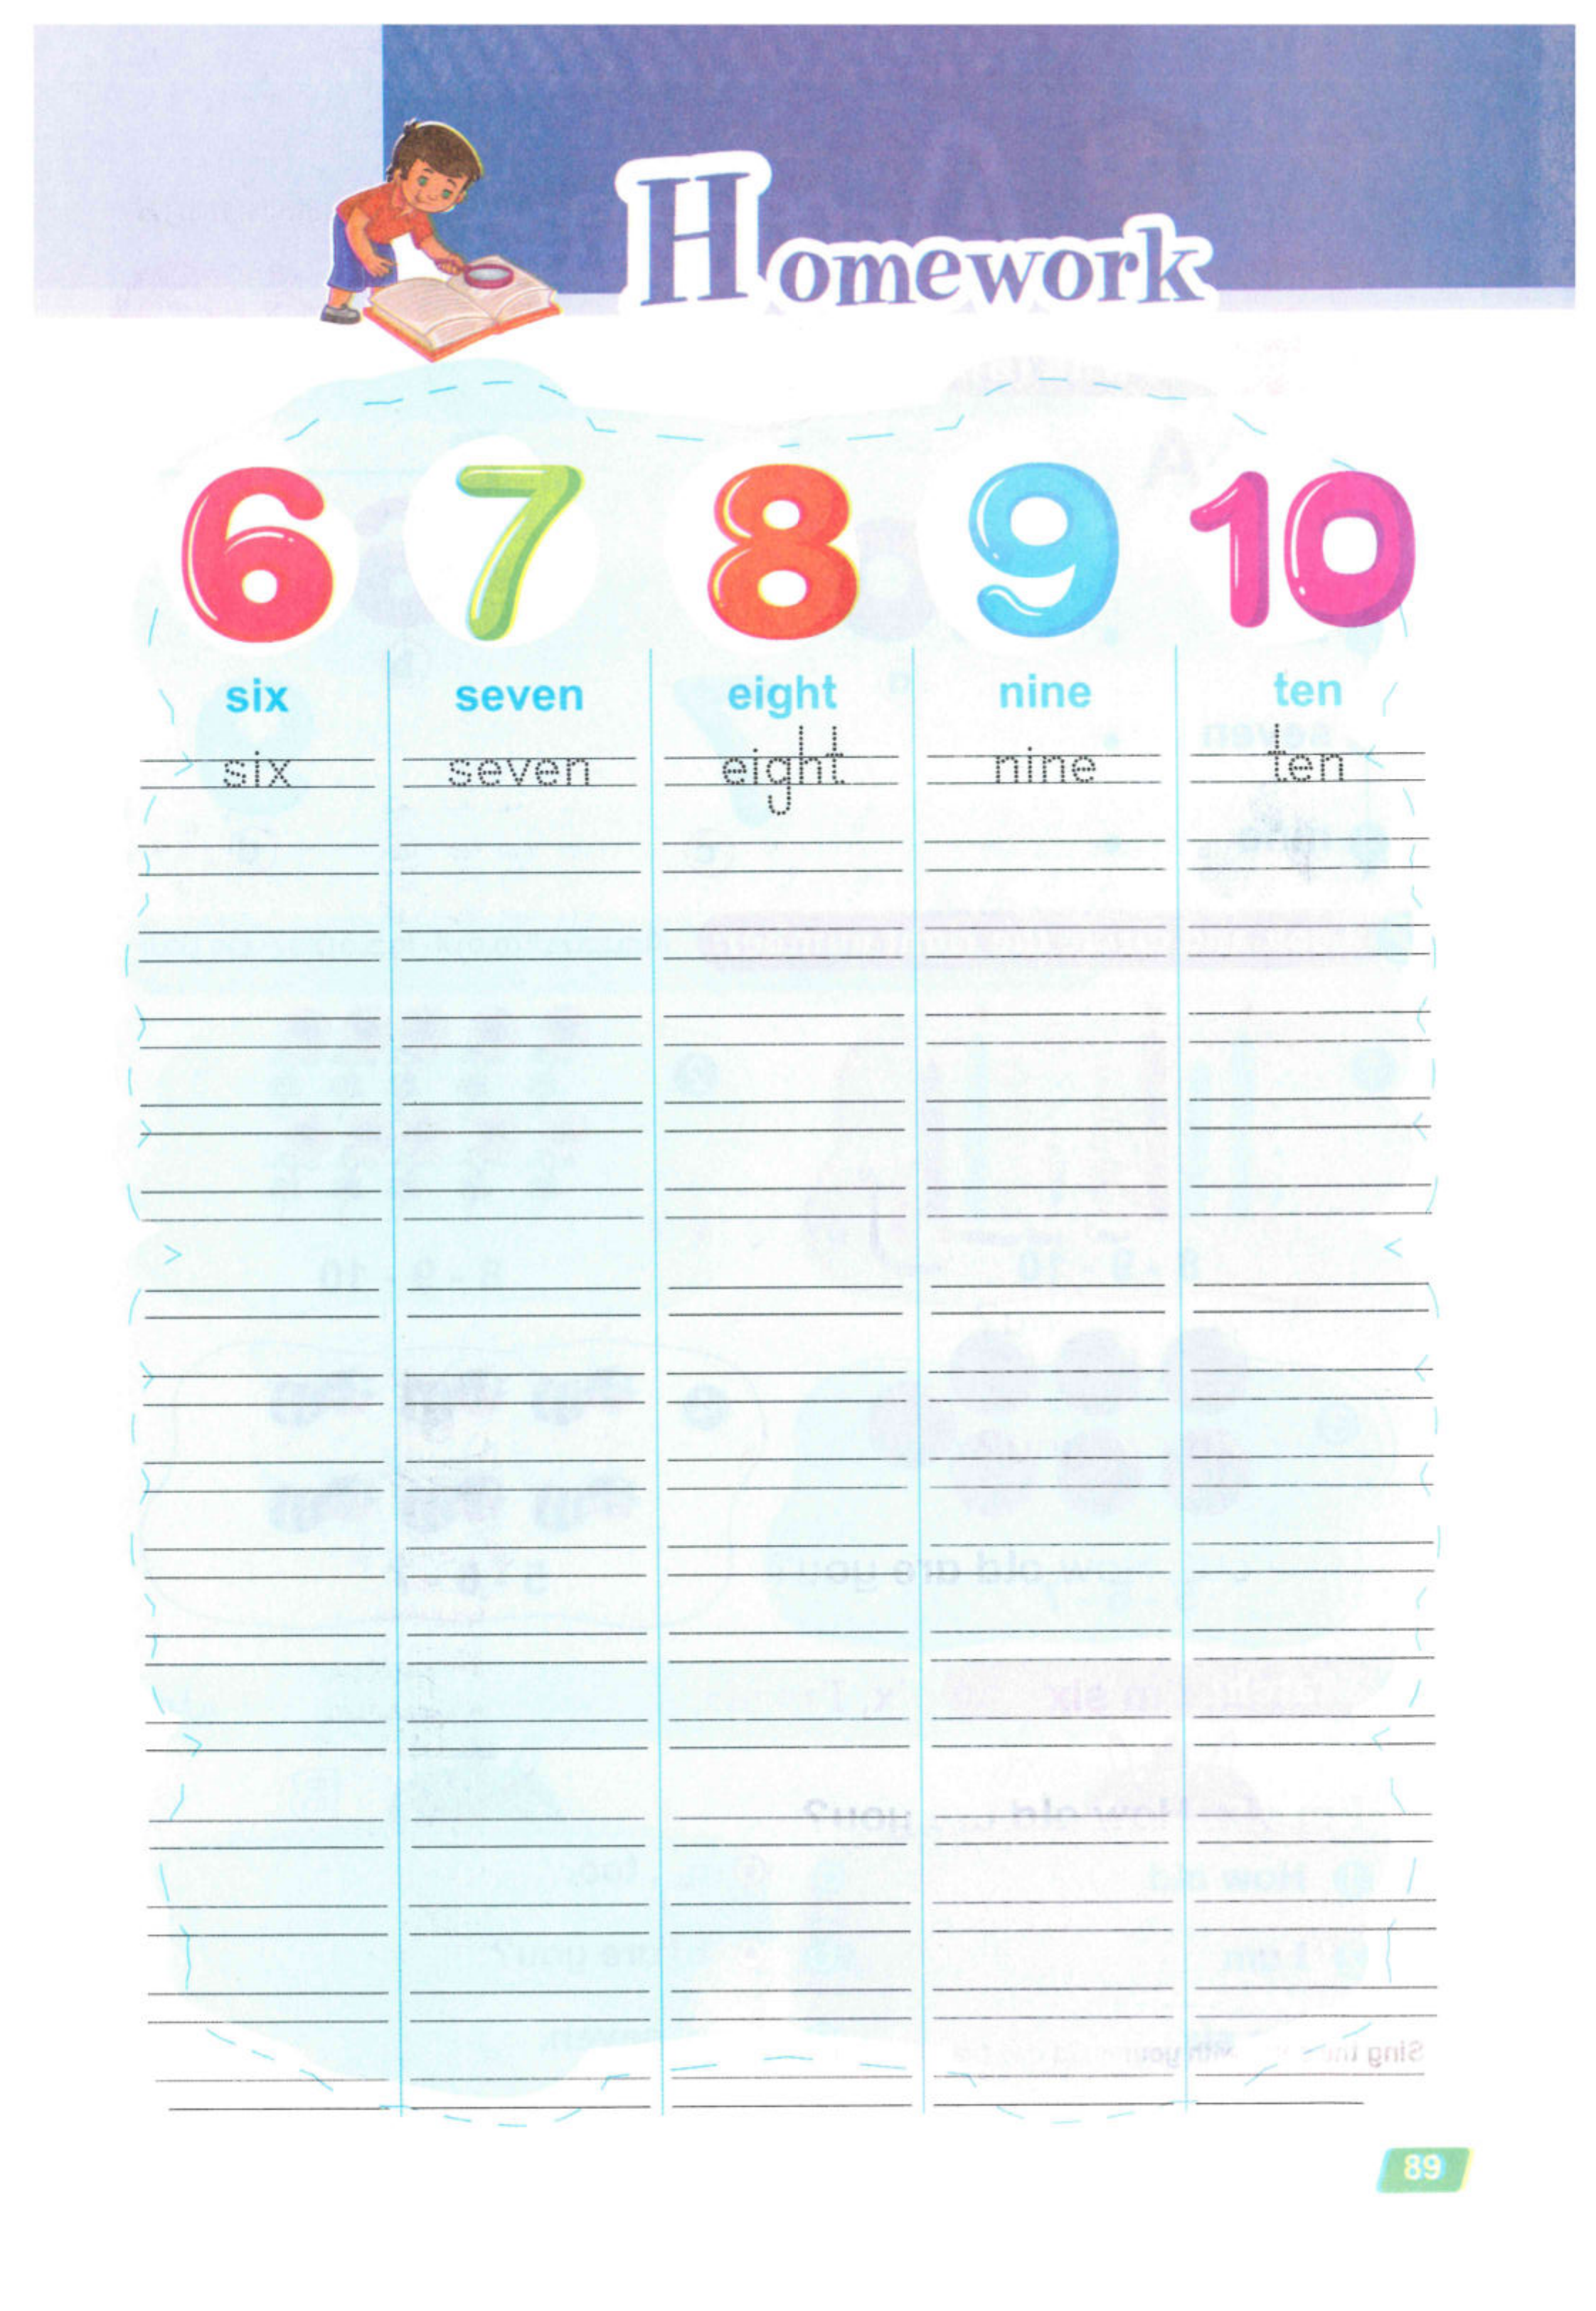 Homework
6 7 8 9 10
six seven eight nine ten
six seven eight nine ten
89